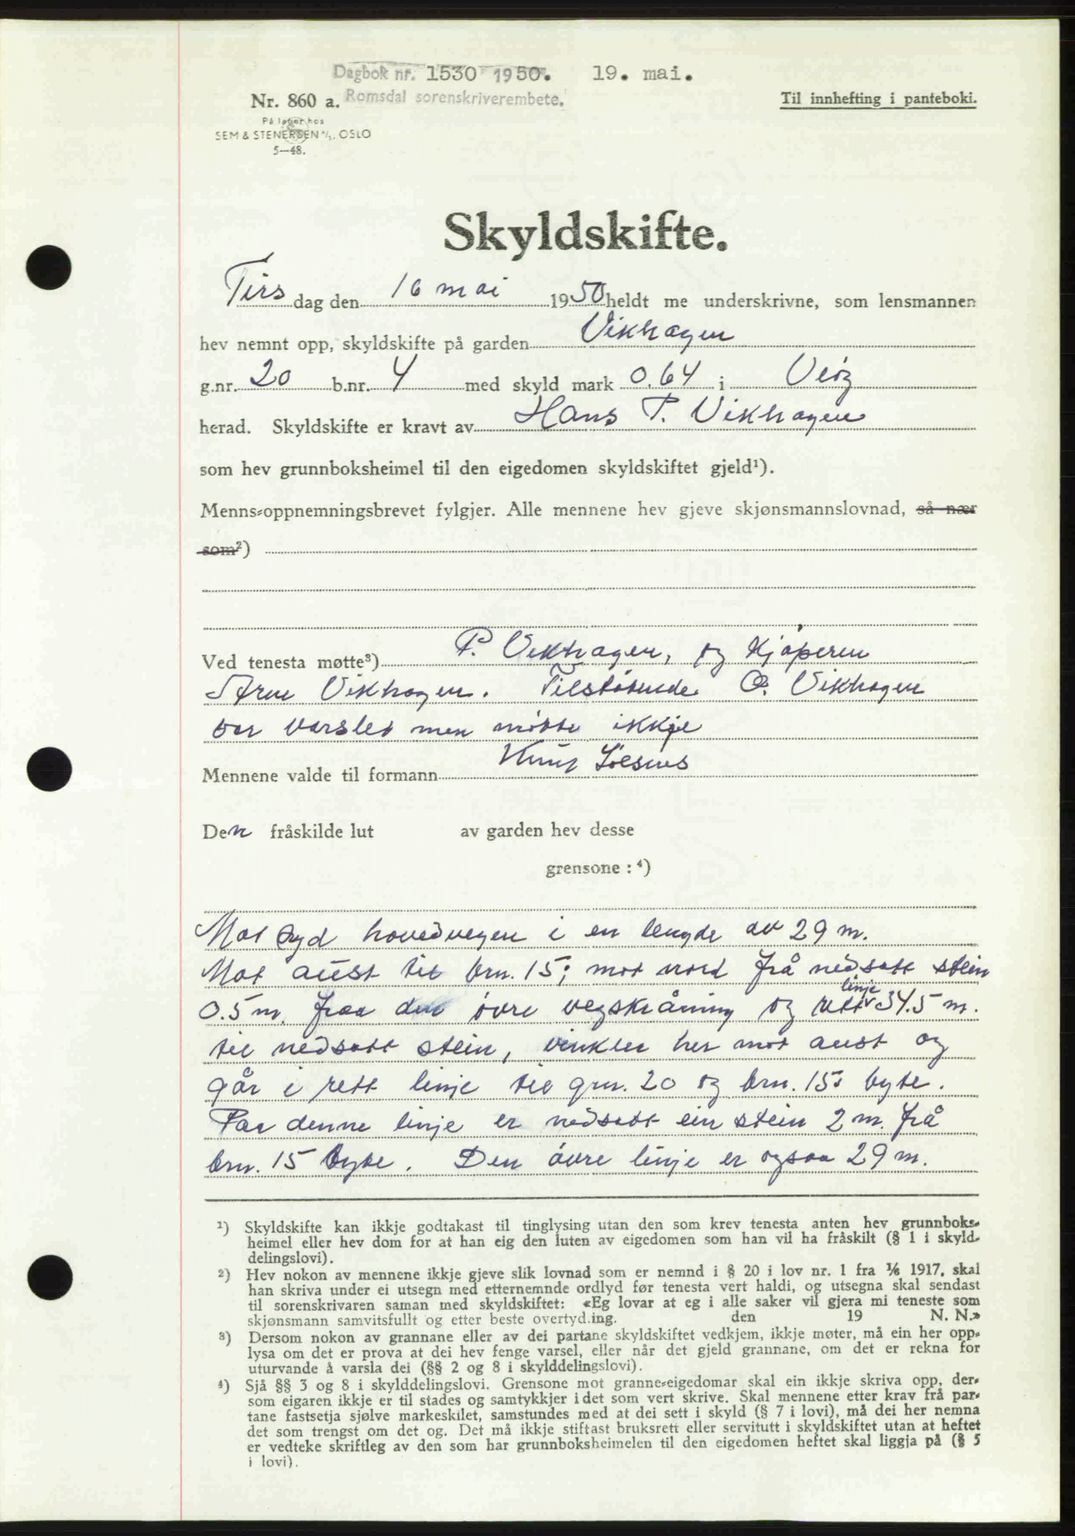 Dagbok nr. 1530 1950. 19. mai.
Romsdal sorenskriverembete.
Nr. 860 a.
Til innhefting i panteboki.
På lager hos
SEM & STENERSEN A/S, OSLO
5—48.
Skyldskifte.
Tirs dag den 16 mai 1950 heldt me underskrivne, som lensmannen
hev nemnt opp, skyldskifte på garden Vikhagen
g.nr. 20 b.nr. 4 med skyld mark 0.64 i Veøy
herad. Skyldskifte er kravt av Hans P. Vikhagen
som hev grunnboksheimel til den eigedomen skyldskiftet gjeld¹).
Menns-oppnemningsbrevet fylgjer. Alle mennene hev gjeve skjønsmannslovnad, så nær
som²)
Ved tenesta møtte³) P. Vikhagen, og Kjøperen
Arne Vikhagen. Tilstøtende O. Vikhagen
var varslet men møtte ikkje
Mennene valde til formann Knut
Den fråskilde lut av garden hev desse
grensone : ⁴)
Mot syd hovedvegen i en lengde av 29 m.
Mot aust til brn. 15; mot nord frå nedsatt stein
0.5 m. fraa den øvre vegskråning og rett linje 34.5 m.
til nedsatt stein, vinkler her mot aust og
går i rett linje til grn. 20 og brn. 15s byte.
Paa denne linje er nedsatt ein stein 2 m. frå
brn. 15 byte. Den øvre linje er ogsaa 29 m.
¹) Skyldskifte kan ikkje godtakast til tinglysing utan den som krev tenesta anten hev grunnboks-
heimel eller hev dom for at han eig den luten av eigedomen som han vil ha fråskilt (§ 1 i skyld-
delingslovi).
²) Hev nokon av mennene ikkje gjeve slik lovnad som er nemnd i § 20 i lov nr. 1 fra ⅙ 1917, skal
han skriva under ei utsegn med etternemnde ordlyd før tenesta vert haldi, og utsegna skal sendast
til sorenskrivaren saman med skyldskiftet: «Eg lovar at eg i alle saker vil gjera mi teneste som
skjønsmann samvitsfullt og etter beste overtyd.ing. den 19 N. N.»
³) Dersom nokon av grannane eller av dei partane skyldskiftet vedkjem, ikkje møter, må ein her opp-
lysa om det er prova at dei hev fenge varsel, eller når det gjeld grannane, om det er rekna for
uturvande å varsla dei (§§ 2 og 8 i skylddelingslovi).
⁴) Sjå §§ 3 og 8 i skylddelingslovi. Grensone mot granne-eigedomar skal ein ikkje skriva opp, der-
som eigaren ikkje er til stades og samtykkjer i det som vert skrive. Skal mennene etter krav frå par-
tane fastsetja sjølve markeskilet, samstundes med at dei sett i skyld (§ 7 i lovi), må dei her nemna
det som trengst om det og. Det må ikkje stiftast bruksrett eller servitutt i skyldskiftet utan at heftet
er vedteke skriftleg av den som har grunnboksheimelen til den eigedomen heftet skal liggja på (§ 5
i lovi).